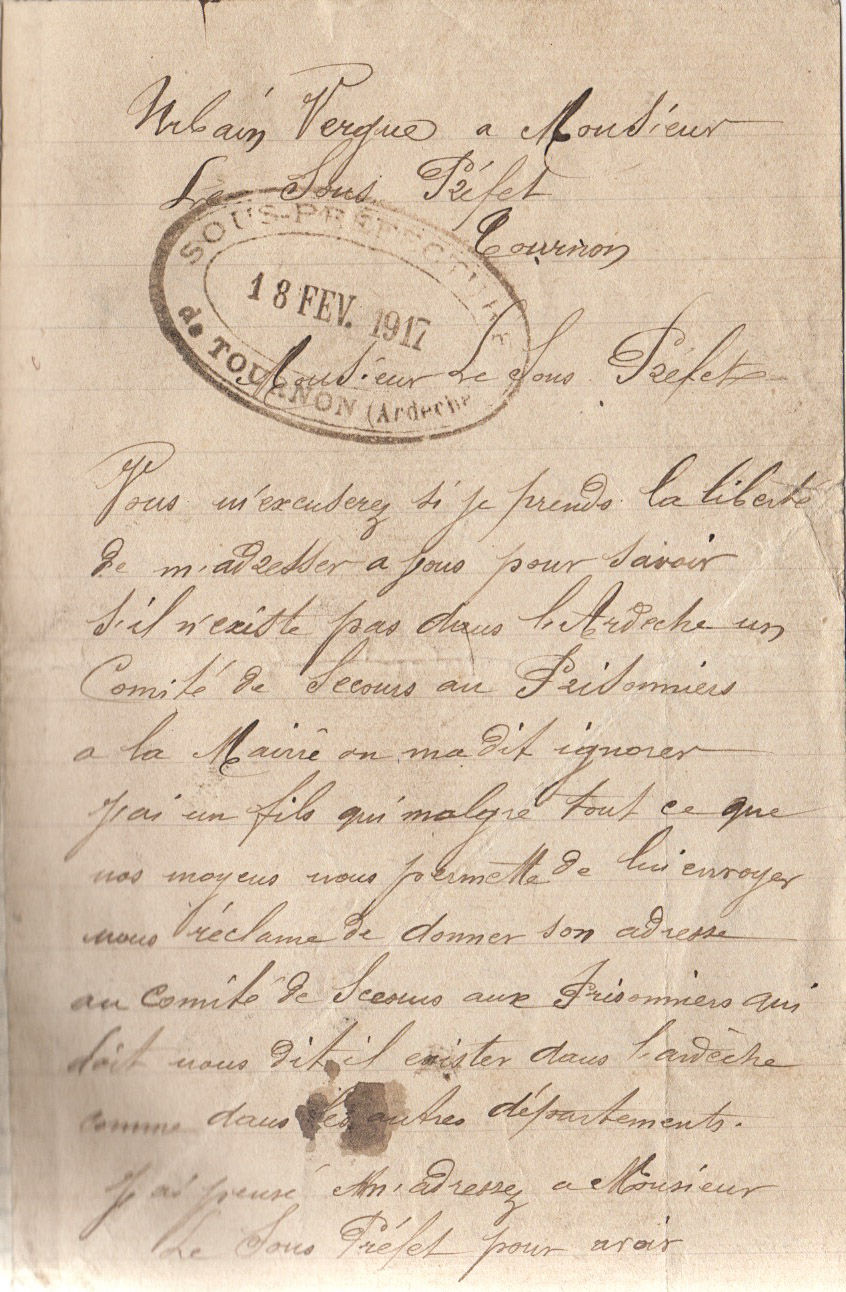 Urbain Vergue a Monsieur
Le Sous Préfet
Tournon
SOUS-PRÉFECTURE
18 FEV. 1917
de TOURNON (Ardèche
Monsieur Le Sous Préfet
Vous m'excuserez si je prends la liberté
de m'adresser a vous pour savoir
s'il n'existe pas dans l'Ardèche un
Comité de Secours au Prisonniers
a la Mairie on ma dit ignorer
j'ai un fils qui malgré tout ce que
nos moyens nous permette de lui envoyer
nous réclame de donner son adresse
au comité de Secours aux Prisonniers qui
doit nous dit il exister dans l'ardèche
comme dans les autres départements.
J'ai pensé m'adressez a Monsieur
Le Sous Préfet pour avoir